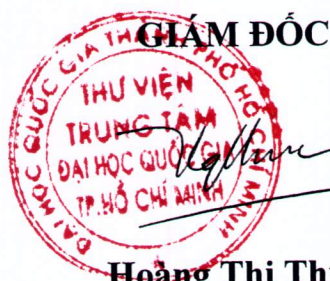 GIÁM ĐỐC
ĐẠI HỌC QUỐC GIA THÀNH PHỐ HỒ CHÍ MINH
THƯ VIỆN
TRUNG TÂM
ĐẠI HỌC QUỐC GIA
TP.HỒ CHÍ MINH
Hoàng Thị